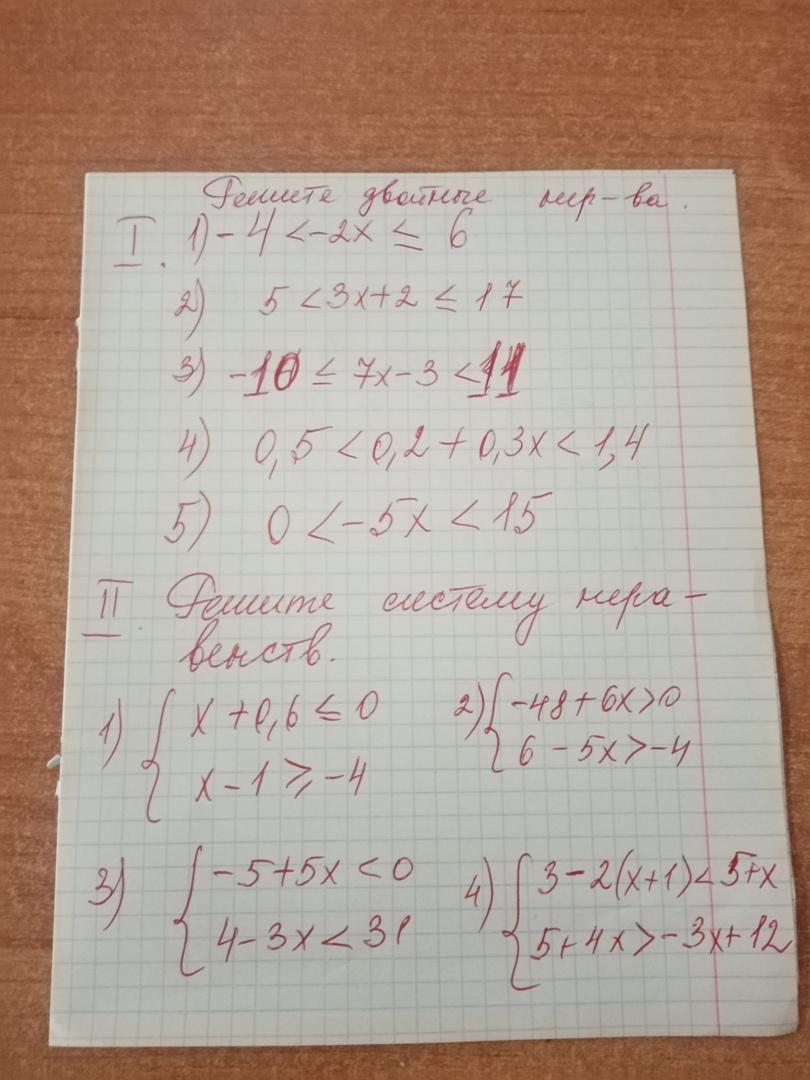 Решите двойные нер-ва.
I. 1) -4 < -2x ≤ 6
2) 5 < 3x+2 ≤ 17
3) -10 ≤ 7x-3 < 11
4) 0,5 < 0,2 + 0,3x < 1,4
5) 0 < -5x < 15
II. Решите систему нера-
венств.
1) { x + 0,6 ≤ 0
x - 1 ≥ -4
2) { -48 + 6x > 0
6 - 5x > -4
3) { -5 + 5x < 0
4 - 3x < 31
4) { 3 - 2(x+1) < 5+x
5 + 4x > -3x + 12